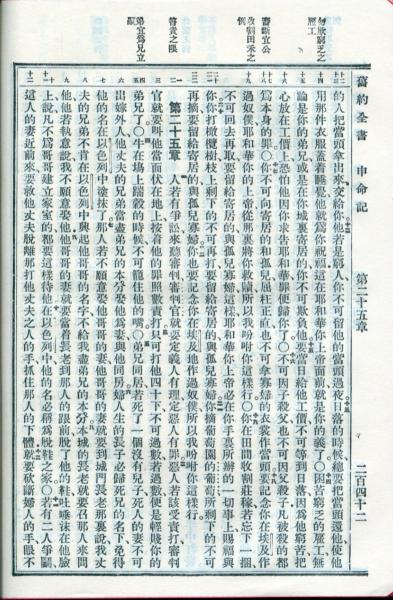 舊約全書 申命記 第二十五章 二百四十二
勿欺窮乏之雇工
審斷宜公
收割田禾之例
笞責之限
弟宜爲兄立嗣
的人把當頭拿出來交給你他若是窮人你不可留他的當頭過夜日落的時候總要把當頭還他使他
用那件衣服蓋着睡覺他就爲你祝福這在耶和華你上帝面前就是你的義了〇困苦窮乏的雇工無
論是你的弟兄或是在你城裏寄居的你不可欺負他要當日給他工價不可等到日落因爲他窮苦把
心放在工價上恐怕他因你求告耶和華罪便歸你了〇不可因子殺父也不可因父殺子凡被殺的都
爲本身的罪〇你不可向寄居的和孤兒屈枉正直也不可拿寡婦的衣裳作當頭要記念你在埃及作
過奴僕耶和華你的上帝從那裏將你救贖所以我吩咐你這樣行〇你在田間收割莊稼若忘下一捆
不可回去再取要留給寄居的與孤兒寡婦這樣耶和華你上帝必在你手裏所辦的一切事上賜福與
你你打橄欖樹枝上剩下的不可再打要留給寄居的與孤兒寡婦你摘葡萄園的葡萄所剩下的不可
再摘要留給寄居的與孤兒寡婦你也要記念你在埃及地作過奴僕所以我吩咐你這樣行。
第二十五章 人若有爭訟來聽審判審判官就要定義人有理定惡人有罪惡人若該受責打審判
官就要叫他當面伏在地上按着他的罪照數責打只可打他四十下不可過數若過數便是輕賤你的
弟兄了〇牛在場上踹穀的時候不可籠住他的嘴〇弟兄同居若死了一個沒有兒子死人的妻不可
出嫁外人他丈夫的兄弟當盡弟兄的本分娶他爲妻與他同房婦人生的長子必歸死兄的名下免得
他的名在以色列中塗抹了那人若不願意娶他哥哥的妻他哥哥的妻就要到城門長老那裏說我丈
夫的兄弟不肯在以色列中興起他哥哥的名字不給我盡弟兄的本分本城的長老就要召那人來問
他他若執意說我不願意娶他他哥哥的妻就要當着長老到那人的跟前脫了他的鞋吐唾沫在他臉
上說凡不爲哥哥建立家室的都要這樣待他在以色列中他的名必稱爲脫鞋之家〇若有二人爭鬬
這人的妻近前來要救他丈夫脫離那打他丈夫之人的手抓住那人的下體就要砍斷婦人的手眼不